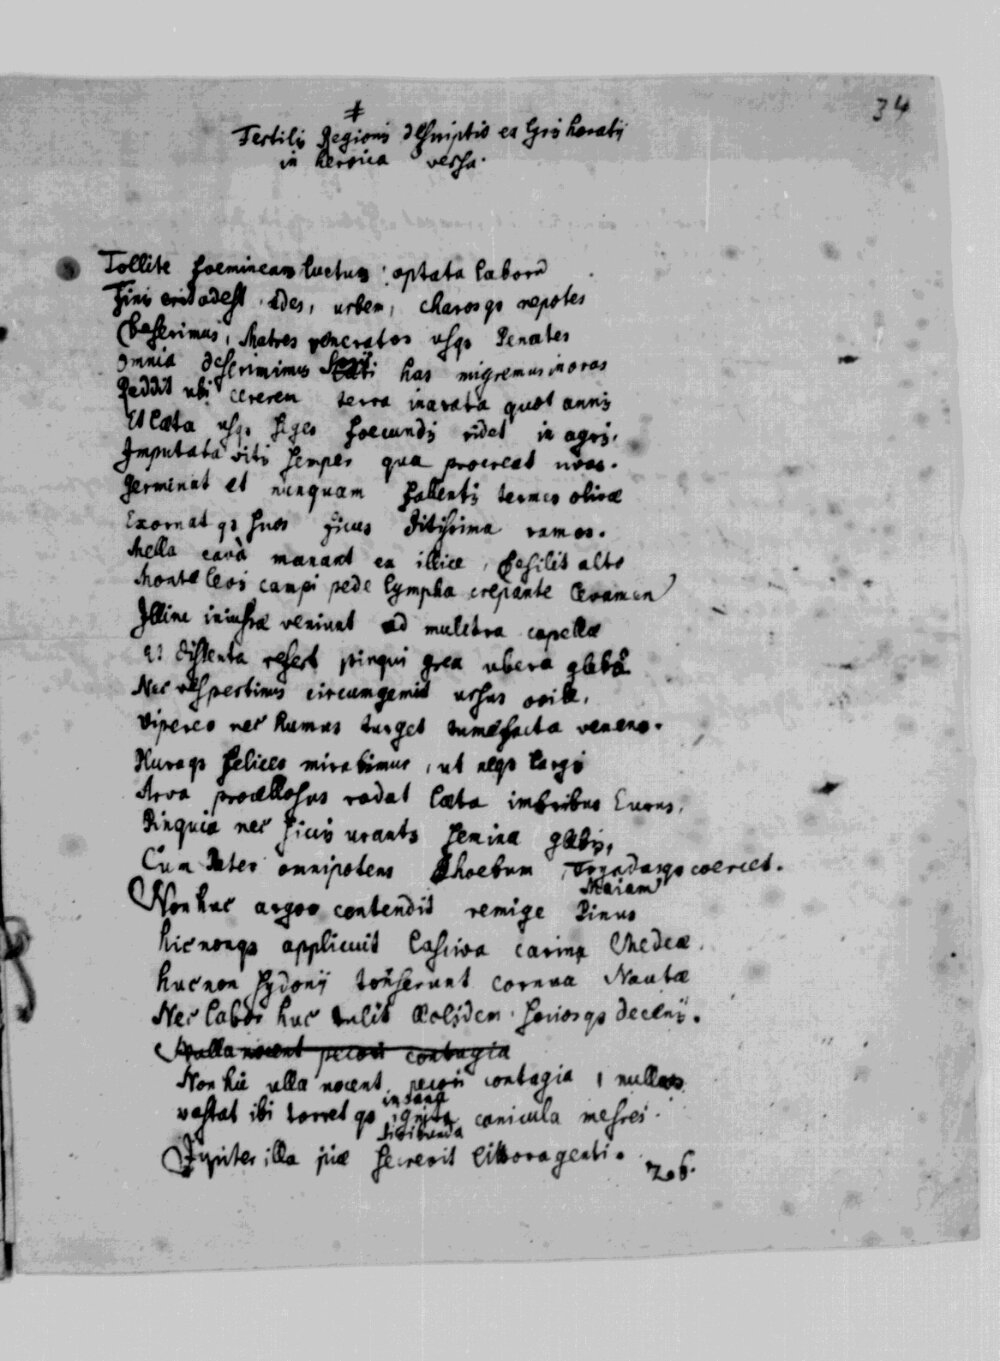 34
‡
Fertilis Regionis descriptio ex horatij
in heroica versa.
Tollite foemineam luctum: optata laborum
Finis erit adest. ædes, urbem, charosqs nepotes
Deserimus, Matres veneratos usqs Penates
Omnia deserimus has migremus in oras
Reddit ubi cererem terra inarata quot annis
Et læta usqs seges foecundis ridet in agris.
Imputata vitis semper qua procreat uvas.
Germinat et nunquam fallentis termes olivæ
Exornat qs suos ficus ditissima ramos.
Mella cavâ manant ex illice, desilit alto
Monte levis campi pede lympha crepante
Illinc iniussæ veniunt ad mulctra capellæ
distenta refert pinqui grex ubera
Nec vespertinus circumgemit ursus ovile,
Vipereo nec humus turget tumefacta veneno.
Pluraqs felices mirabimur, ut neqs largis
Arva procellosus radat læta imbribus Eurus,
Pinquia nec siccis urantr semina glebis,
Cum Pater omnipotens Phoebum, coercet.
Maiam
Non huc argoo contendit remige Pinus
hic nonqs applicuit lasciva carina Medeæ
huc non sydonij torserunt cornua Nautæ
Nec labor huc tulit Æolidem
Nulla nocent pecori contagia
Non hic ulla nocent pecori contagia, nullas
insana
vastat ibi torret qs ignita canicula messes.
sitibunda
Jupiter illa piæ secrevit littora genti.